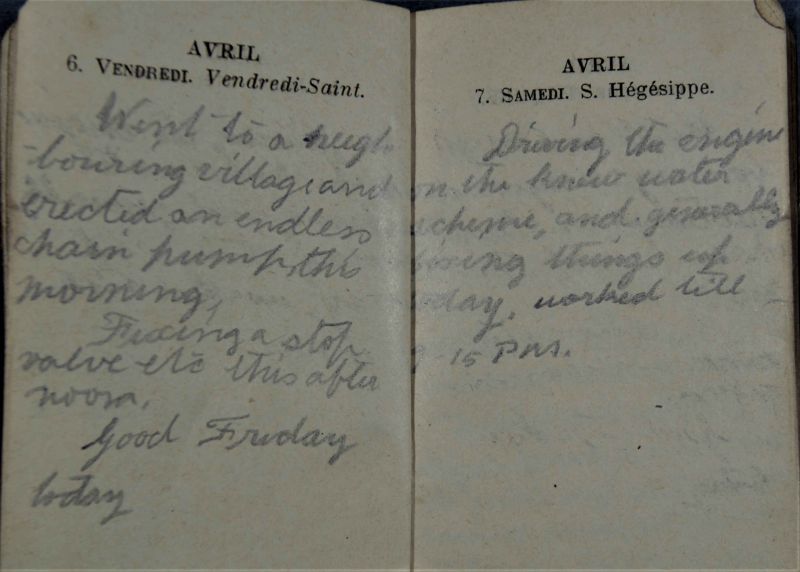 AVRIL
6. VENDREDI. Vendredi-Saint.
Went to a neigh-
bouring village and
erected an endless
chain pump, this
morning,
Fixing a stop
valve etc this after
noon.
Good Friday
today
AVRIL
7. SAMEDI. S. Hégésippe.
Driving the engine
on the knew water
scheme, and generally
fixing things up
today, worked till
-15 P.M.